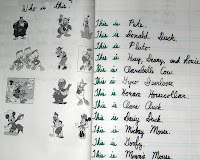 Who is this?
This is Pete.
This is Donald Duck.
This is Pluto.
This is Huey, Dewey, and Louie.
This is Clarabelle Cow.
This is Gyro Gearloose.
This is Horace Horsecollar.
This is Clara Cluck.
This is Daisy Duck.
This is Mickey Mouse.
This is Goofy.
This is Minnie Mouse.